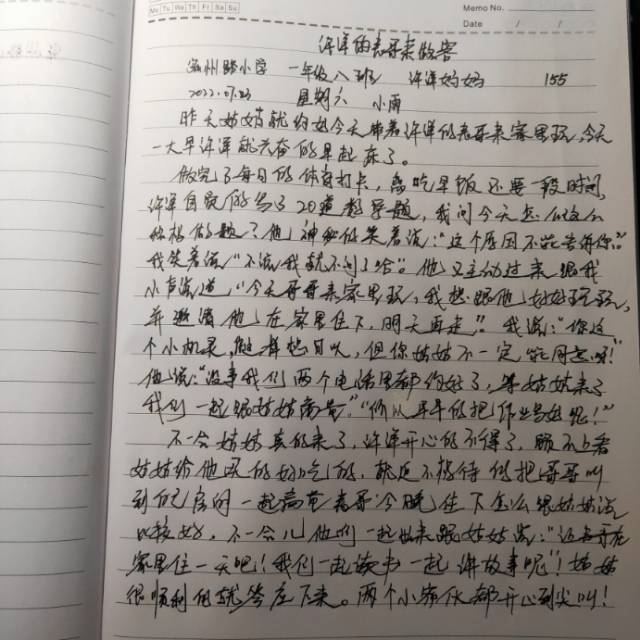 Mo Tu We Th Fr Sa Su
Memo No.
Date / /
洋洋的表哥来做客
温州路小学 一年级八班 洋洋妈妈 155
2022.07.23 星期六 小雨
昨天姑姑就约好今天带着洋洋的表哥来家里玩,今天
一大早洋洋就兴奋的早起床了。
做完了每日的体育打卡,离吃早饭还要一段时间,
洋洋自觉的写了20道数学题,我问今天怎么这么
积极做题?他神秘的笑着说:“这个原因不能告诉你。”
我笑着说“不说我就不问了哈”。他又主动过来跟我
小声说道“今天哥哥来家里玩,我想跟他好好玩玩,
并邀请他在家里住下,明天再走”!我说:“你这
个小机灵,这样也可以,但你姑姑不一定能同意呀!”
他说:“没事我们两个电话里都约好了,等姑姑来了
我们一起跟姑姑商量”“所以早早的把作业写好呢!”
不一会姑姑真的来了,洋洋开心的不得了,顾不上看
姑姑给他买的好吃的,就迫不及待的把哥哥叫
到自己房间一起商量表哥今晚住下怎么跟姑姑说
比较好,不一会儿他们一起出来跟姑姑说:“让哥哥在
家里住一天吧!我们一起读书一起讲故事呢”!姑姑
很顺利的就答应下来。两个小家伙都开心到尖叫!